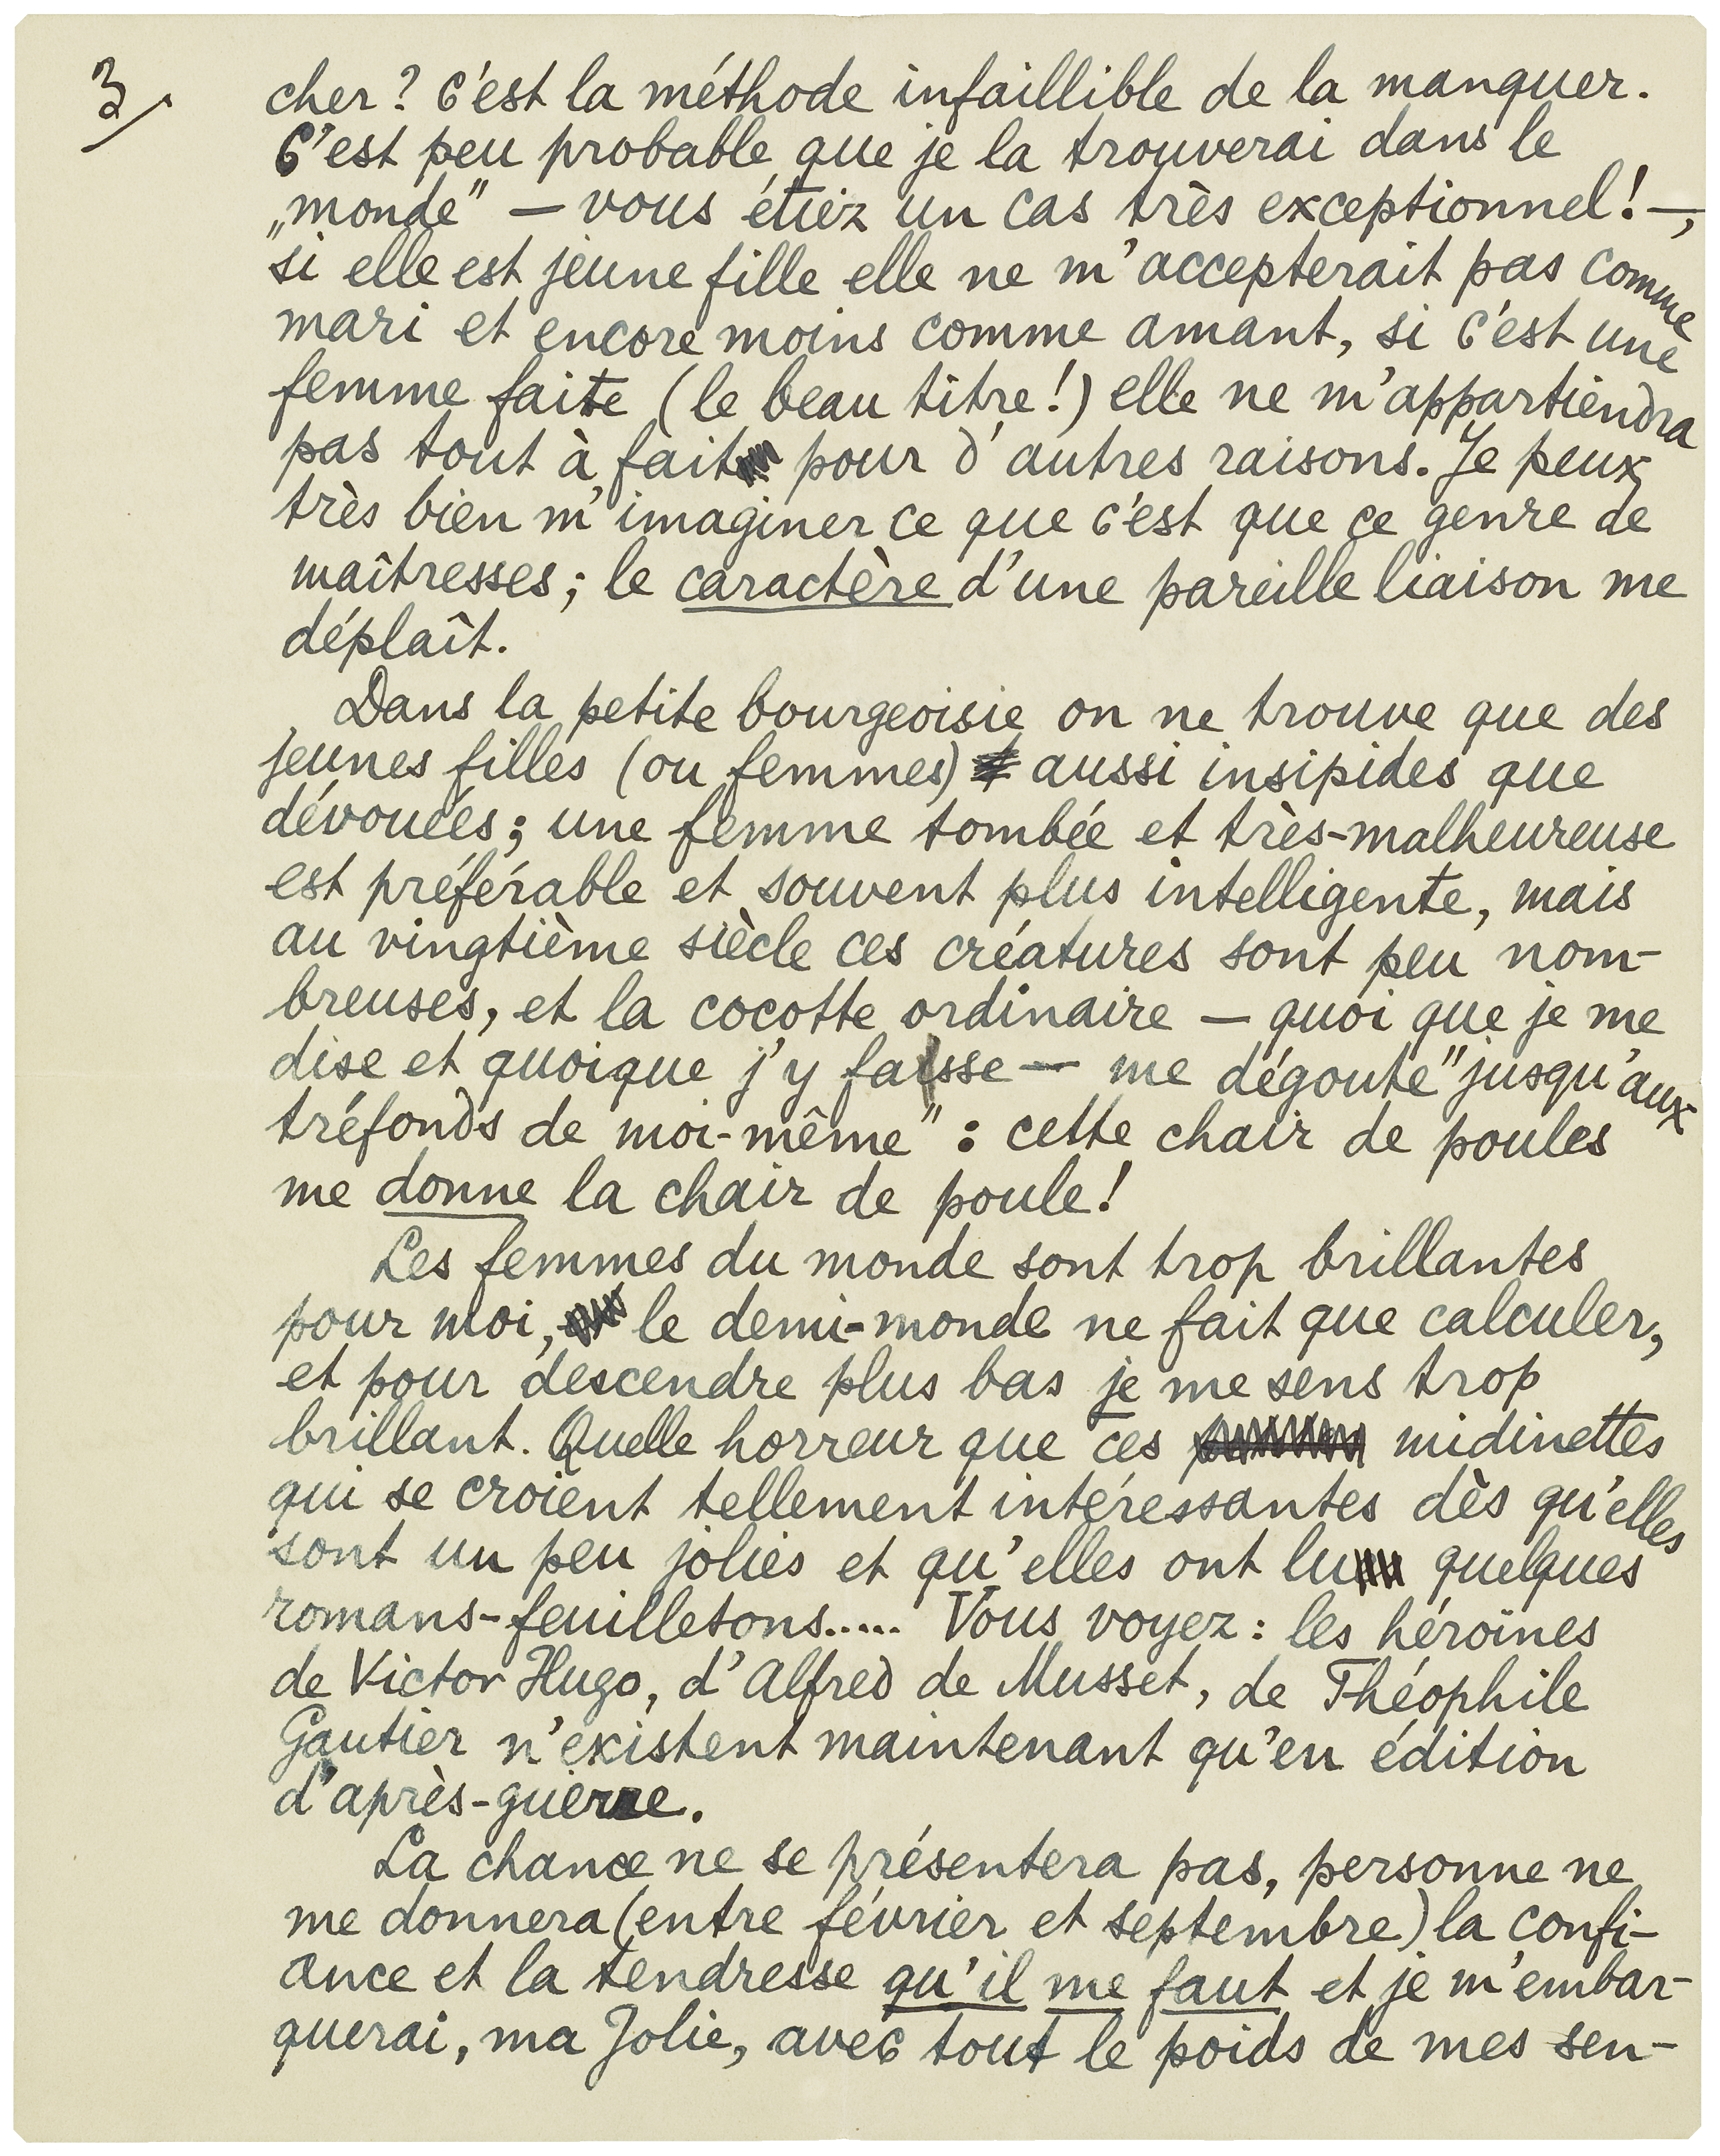 3/
cher? C'est la méthode infaillible de la manquer.
C'est peu probable que je la trouverai dans le
„monde" — vous étiez un cas très exceptionnel! —,
si elle est jeune fille elle ne m'accepterait pas comme
mari et encore moins comme amant, si c'est une
femme faite (le beau titre!) elle ne m'appartiendra
pas tout à fait pour d'autres raisons. Je peux
très bien m'imaginer ce que c'est que ce genre de
maîtresses; le caractère d'une pareille liaison me
déplaît.
Dans la petite bourgeoisie on ne trouve que des
jeunes filles (ou femmes) aussi insipides que
dévouées; une femme tombée et très-malheureuse
est préférable et souvent plus intelligente, mais
au vingtième siècle ces créatures sont peu nom-
breuses, et la cocotte ordinaire — quoi que je me
dise et quoique j'y fasse — me dégoute "jusqu'aux
tréfonds de moi-même": cette chair de poules
me donne la chair de poule!
Les femmes du monde sont trop brillantes
pour moi, le demi-monde ne fait que calculer,
et pour descendre plus bas je me sens trop
brillant. Quelle horreur que ces midinettes
qui se croient tellement intéressantes dès qu'elles
sont un peu jolies et qu'elles ont lu quelques
romans-feuilletons..... Vous voyez: les héroïnes
de Victor Hugo, d'Alfred de Musset, de Théophile
Gautier n'existent maintenant qu'en édition
d'après-guerre.
La chance ne se présentera pas, personne ne
me donnera (entre février et septembre) la confi-
ance et la tendresse qu'il me faut et je m'embar-
querai, ma Jolie, avec tout le poids de mes sen-